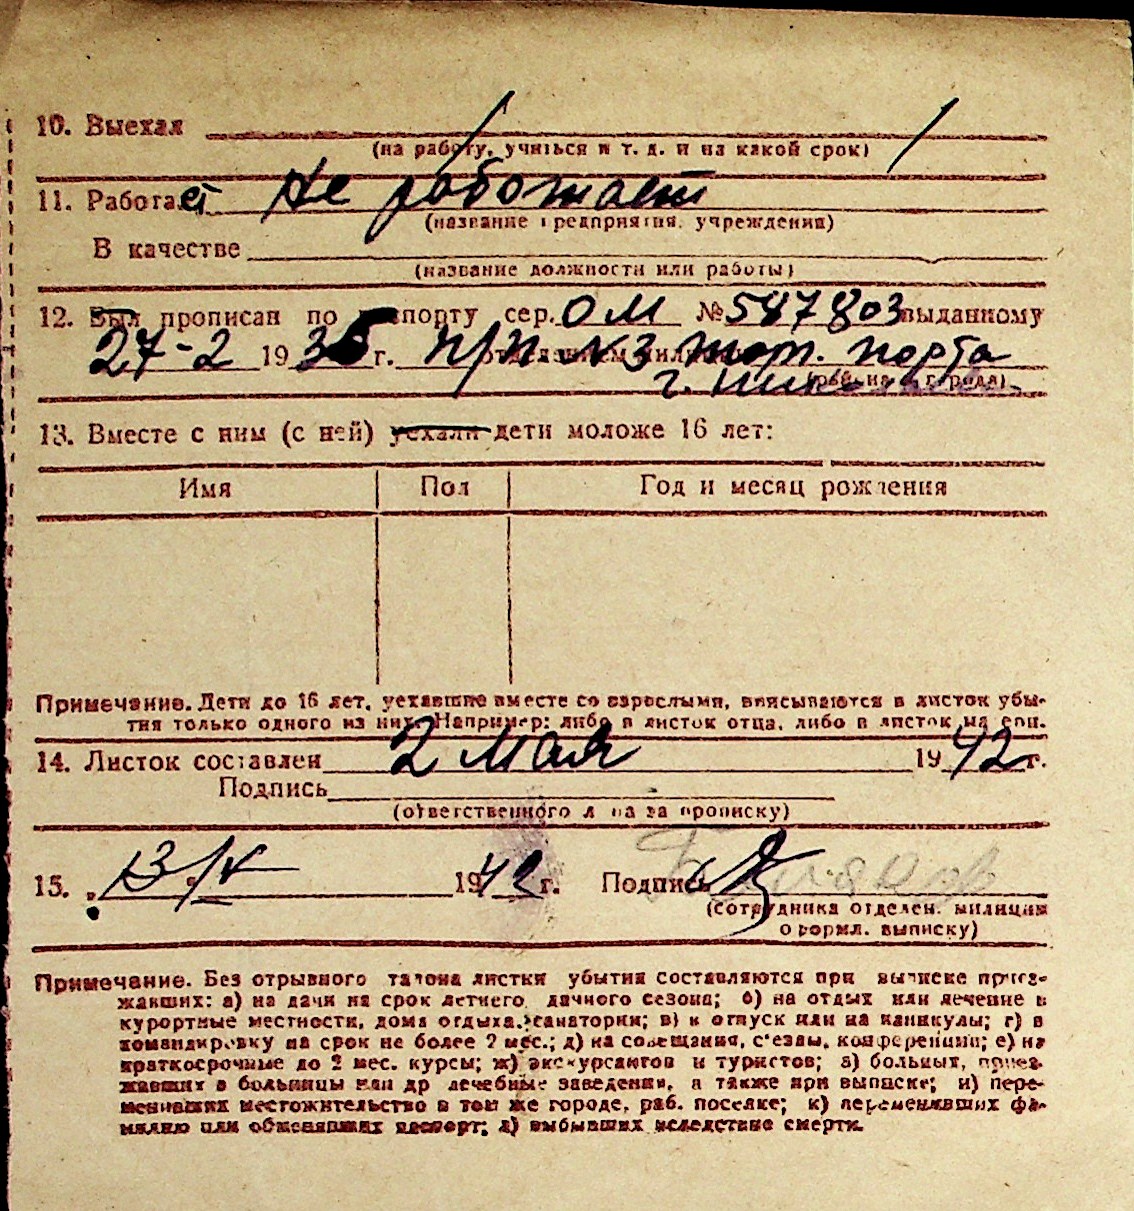 10. Выехал
(на работу, учиться и т. д. и на какой срок)
11. Работает Не работает
(название предприятия, учреждения)
В качестве
(название должности или работы)
12. Был прописан по паспорту сер. ОМ № 587803 выданному
27-2 1936 г. п/п №3 торг. порта
г.
(района и города)
13. Вместе с ним (с ней) уехали дети моложе 16 лет:
Имя Пол Год и месяц рождения
Примечание. Дети до 16 лет, уехавшие вместе со взрослыми, вписываются в листок убы-
тия только одного из них. Например: либо в листок отца, либо в листок матери.
14. Листок составлен 2 мая 1942 г.
Подпись
(ответственного лица за прописку)
15. „13/V 1942 г. Подпись
(сотрудника отделен. милиции
оформл. выписку)
Примечание. Без отрывного талона листки убытия составляются при выписке приез-
жавших: а) на дачи на срок летнего, дачного сезона; б) на отдых или лечение в
курортные местности, дома отдыха, санатории; в) в отпуск или на каникулы; г) в
командировку на срок не более 2 мес.; д) на совещания, с'езды, конференции; е) на
краткосрочные до 2 мес. курсы; ж) экскурсантов и туристов; з) больных, приез-
жавших в больницы или др лечебные заведения, а также при выписке; и) пере-
менивших местожительство в том же городе, раб. поселке; к) переменивших фа-
милию или обменявших паспорт; л) выбывших вследствие смерти.